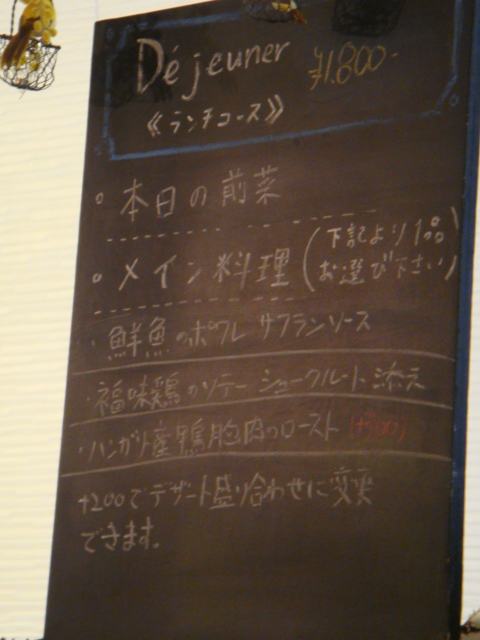 Déjeuner ¥1.800-
《ランチコース》
○ 本日の前菜
○ メイン料理 (下記より1品お選び下さい)
・鮮魚のポワレ サフランソース
・福味鶏のソテー シュークルート添え
・ハンガリー産鴨胸肉のロースト (+500)
+200でデザート盛り合わせに変更
できます。